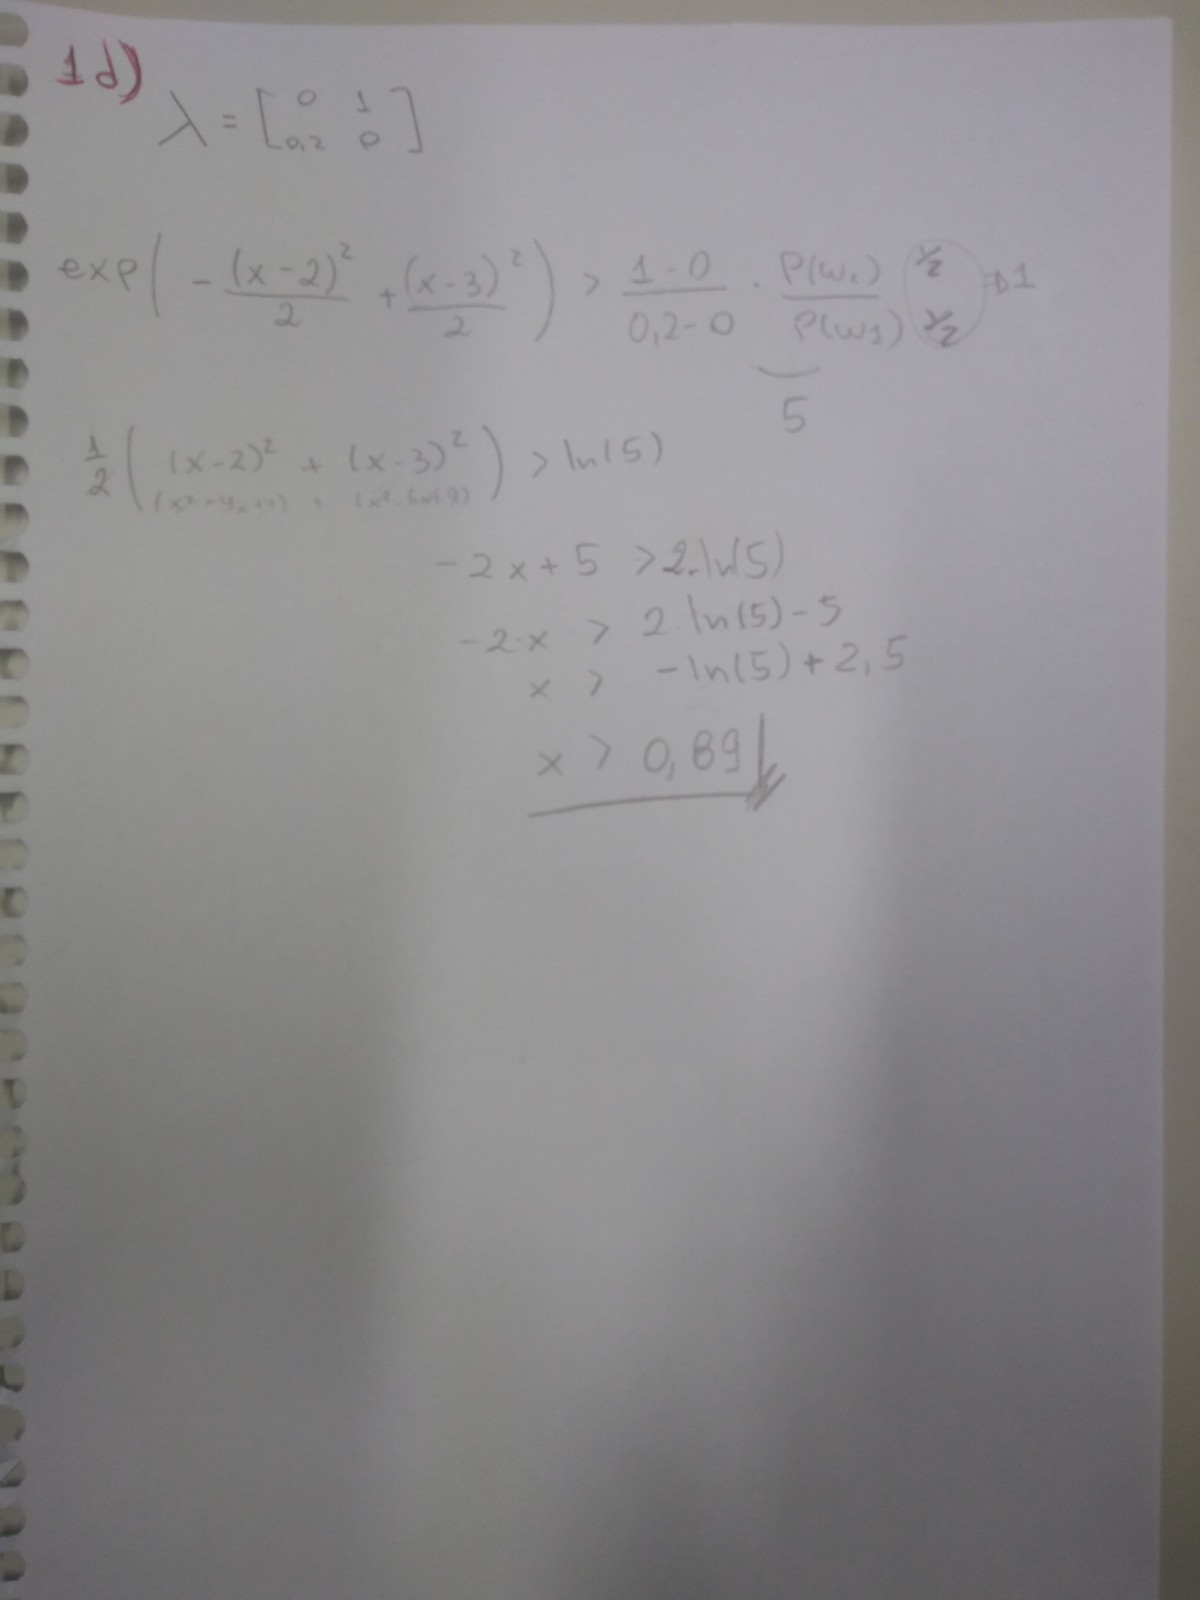 1d)
λ = [ 0 1
0,2 0 ]
exp( - (x-2)² / 2 + (x-3)² / 2 ) > (1-0) / (0,2-0) · P(ω₂) / P(ω1) (½ / ½) → 1
5
1/2 ( (x-2)² + (x-3)² ) > ln(5)
(x²-4x+4) + (x²-6x+9)
-2x + 5 > 2·ln(5)
-2·x > 2 ln(5) - 5
x > -ln(5) + 2,5
x > 0,89